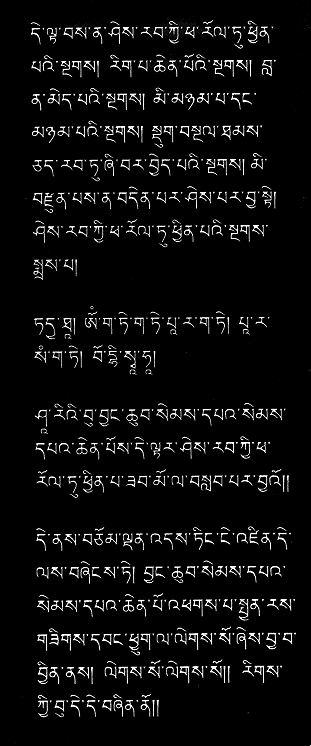 དེ་ལྟ་བས་ན་ཤེས་རབ་ཀྱི་ཕ་རོལ་ཏུ་ཕྱིན་
པའི་སྔགས། རིག་པ་ཆེན་པོའི་སྔགས། བླ་
ན་མེད་པའི་སྔགས། མི་མཉམ་པ་དང་
མཉམ་པའི་སྔགས། སྡུག་བསྔལ་ཐམས་
ཅད་རབ་ཏུ་ཞི་བར་བྱེད་པའི་སྔགས། མི་
བརྫུན་པས་ན་བདེན་པར་ཤེས་པར་བྱ་སྟེ།
ཤེས་རབ་ཀྱི་ཕ་རོལ་ཏུ་ཕྱིན་པའི་སྔགས་
སྨྲས་པ།
ཏདྱ་ཐཱ། ཨོཾ་ག་ཏེ་ག་ཏེ་པཱ་ར་ག་ཏེ། པཱ་ར་
སཾ་ག་ཏེ། བོ་དྷི་སྭཱ་ཧཱ།
ཤཱ་རིའི་བུ་བྱང་ཆུབ་སེམས་དཔའ་སེམས་
དཔའ་ཆེན་པོས་དེ་ལྟར་ཤེས་རབ་ཀྱི་ཕ་
རོལ་ཏུ་ཕྱིན་པ་ཟབ་མོ་ལ་བསླབ་པར་བྱའོ།།
དེ་ནས་བཅོམ་ལྡན་འདས་ཏིང་ངེ་འཛིན་དེ་
ལས་བཞེངས་ཏེ། བྱང་ཆུབ་སེམས་དཔའ་
སེམས་དཔའ་ཆེན་པོ་འཕགས་པ་སྤྱན་རས་
གཟིགས་དབང་ཕྱུག་ལ་ལེགས་སོ་ཞེས་བྱ་བ་
བྱིན་ནས། ལེགས་སོ་ལེགས་སོ།། རིགས་
ཀྱི་བུ་དེ་དེ་བཞིན་ནོ།།